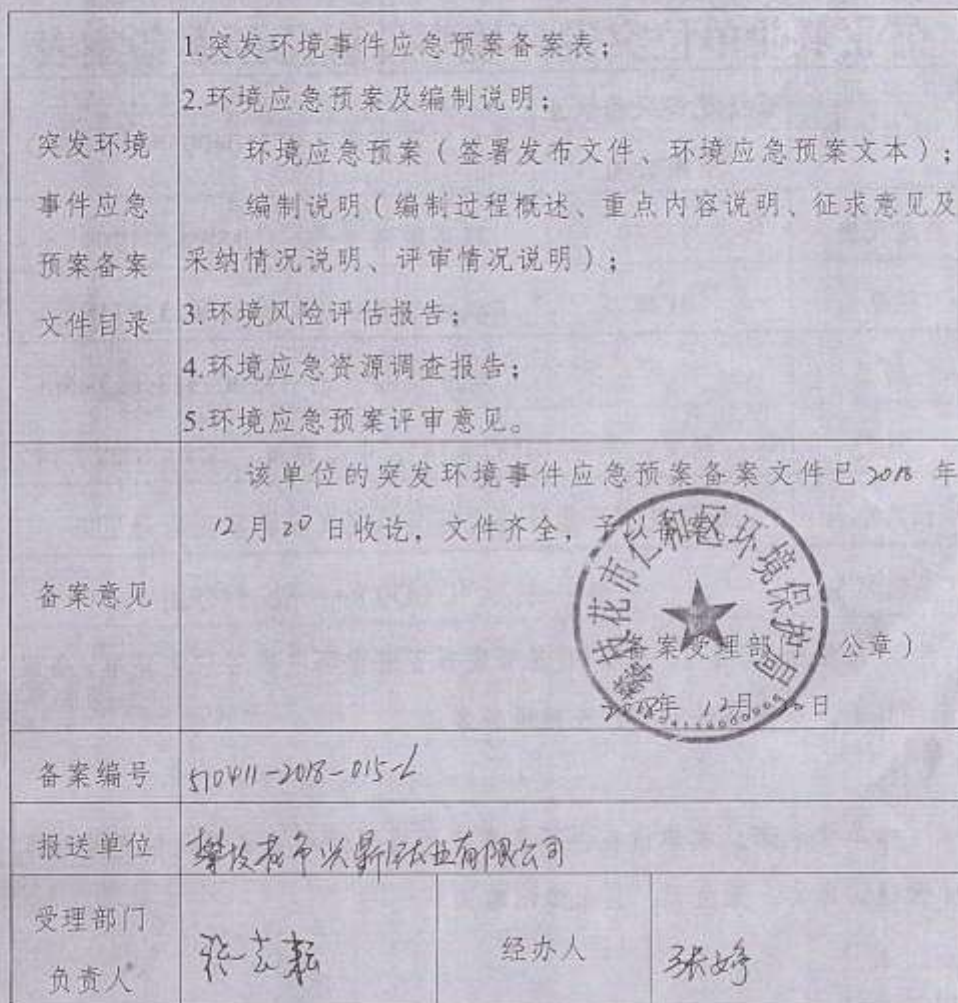 突发环境
事件应急
预案备案
文件目录
1.突发环境事件应急预案备案表；
2.环境应急预案及编制说明；
环境应急预案（签署发布文件、环境应急预案文本）；
编制说明（编制过程概述、重点内容说明、征求意见及
采纳情况说明、评审情况说明）；
3.环境风险评估报告；
4.环境应急资源调查报告；
5.环境应急预案评审意见。
备案意见
该单位的突发环境事件应急预案备案文件已2018 年
12月20日收讫，文件齐全，予以备案。
攀枝花市仁和区环境保护局
备案受理部门（公章）
2018年 12月 日
备案编号
510411-2018-015-L
报送单位
攀枝花市兴鼎 业有限公司
受理部门
负责人
张
经办人
张婷